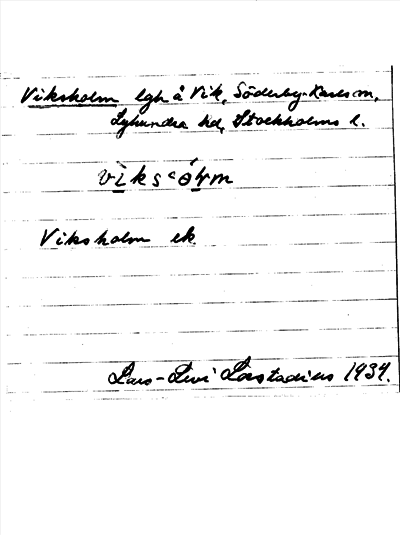 Viksholm lgh å Vik, Söderby-Karls sn,
Lyhundra hd, Stockholms l.
Viksholm ek
Lars-Levi Læstadius 1934.